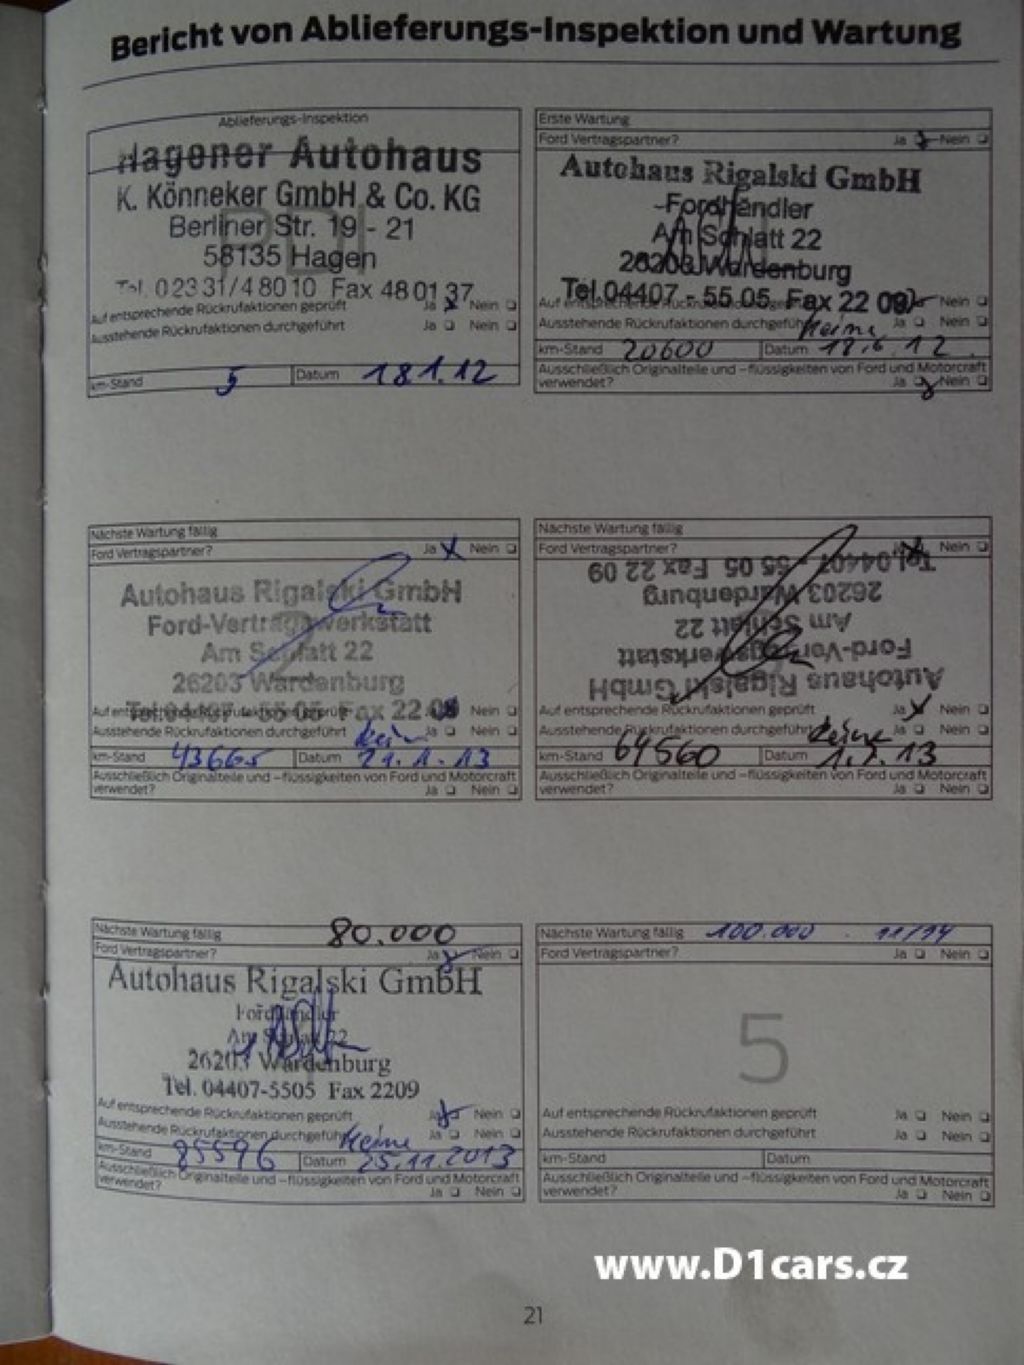 Bericht von Ablieferungs-Inspektion und Wartung
Ablieferungs-Inspektion
Hagener Autohaus
K. Könneker GmbH & Co. KG
Berliner Str. 19 - 21
58135 Hagen
Tel. 02331/48010 Fax 480137
Auf entsprechende Rückrufaktionen geprüft Ja Nein
Ausstehende Rückrufaktionen durchgeführt Ja Nein
km-Stand 5 Datum 18.1.12
Erste Wartung
Ford Vertragspartner? Ja Nein
Autohaus Rigalski GmbH
-Fordhändler
Am Schlatt 22
26203 Wardenburg
Tel.04407 - 55 05, Fax 22 09
Auf entsprechende Rückrufaktionen geprüft Ja Nein
Ausstehende Rückrufaktionen durchgeführt Keine Ja Nein
km-Stand 20600 Datum 18.6.12.
Ausschließlich Originalteile und -flüssigkeiten von Ford und Motorcraft
verwendet? Ja Nein
Nächste Wartung fällig
Ford Vertragspartner? Ja Nein
Autohaus Rigalski GmbH
Ford-Vertragswerkstatt
Am Schlatt 22
26203 Wardenburg
Tel.04407 - 55 05 Fax 22 09
Auf entsprechende Rückrufaktionen geprüft Ja Nein
Ausstehende Rückrufaktionen durchgeführt Ja Nein
km-Stand 43665 Datum 21.1.13
Ausschließlich Originalteile und -flüssigkeiten von Ford und Motorcraft
verwendet? Ja Nein
Nächste Wartung fällig
Ford Vertragspartner? Ja Nein
Autohaus Rigalski GmbH
Ford-Vertragswerkstatt
Am Schlatt 22
26203 Wardenburg
Tel.04407 - 55 05 Fax 22 09
Auf entsprechende Rückrufaktionen geprüft Ja Nein
Ausstehende Rückrufaktionen durchgeführt Keine Ja Nein
km-Stand 64560 Datum 1.7.13
Ausschließlich Originalteile und -flüssigkeiten von Ford und Motorcraft
verwendet? Ja Nein
Nächste Wartung fällig 80.000
Ford Vertragspartner? Ja Nein
Autohaus Rigalski GmbH
Fordhändler
Am Schlatt 22
26203 Wardenburg
Tel. 04407-5505 Fax 2209
Auf entsprechende Rückrufaktionen geprüft Ja Nein
Ausstehende Rückrufaktionen durchgeführt Keine Ja Nein
km-Stand 85596 Datum 25.11.2013
Ausschließlich Originalteile und -flüssigkeiten von Ford und Motorcraft
verwendet? Ja Nein
Nächste Wartung fällig 100.000 . 11/14
Ford Vertragspartner? Ja Nein
5
Auf entsprechende Rückrufaktionen geprüft Ja Nein
Ausstehende Rückrufaktionen durchgeführt Ja Nein
km-Stand Datum
Ausschließlich Originalteile und -flüssigkeiten von Ford und Motorcraft
verwendet? Ja Nein
www.D1cars.cz
21